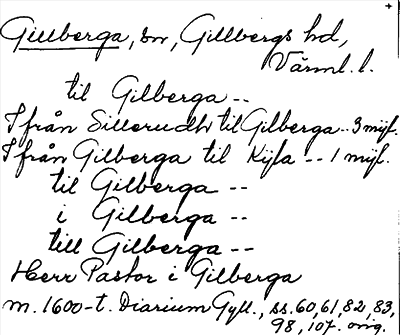 Gillberga, sn, Gillbergs hd,
Värml. l.
til Gilberga --
Ifrån Sillerudh til Gilberga -- 3 mijl.
Ifrån Gilberga til Kijla -- 1 mijl.
til Gilberga --
i Gilberga --
till Gilberga --
Herr Pastor i Gilberga
m. 1600-t. Diarium Gyll., ss. 60, 61, 82, 83,
98, 107. orig.